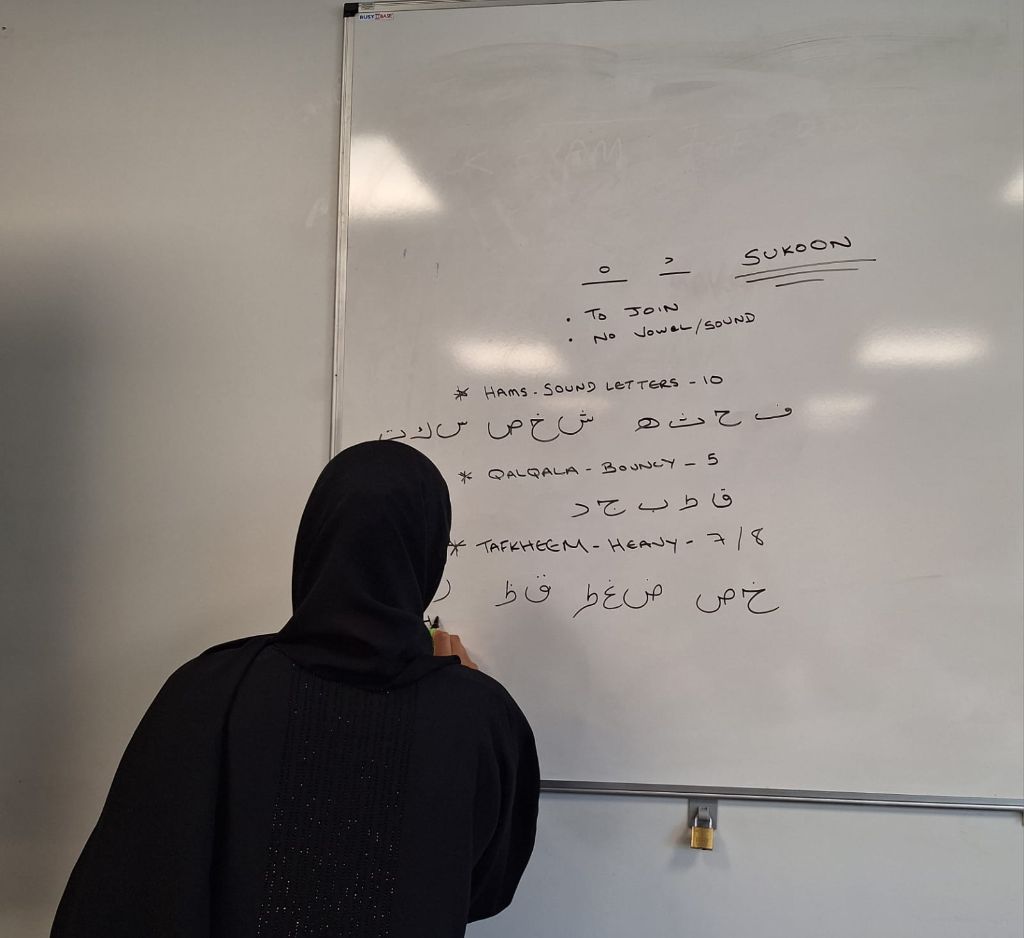 BUSYBASE
SUKOON
• TO JOIN
• NO VOWEL/SOUND
* HAMS - SOUND LETTERS - 10
ف ح ث ه ش خ ص س ك ت
* QALQALA - BOUNCY - 5
ق ط ب ج د
* TAFKHEEM - HEAVY - 7/8
خ ص ض غ ط ق ظ ر